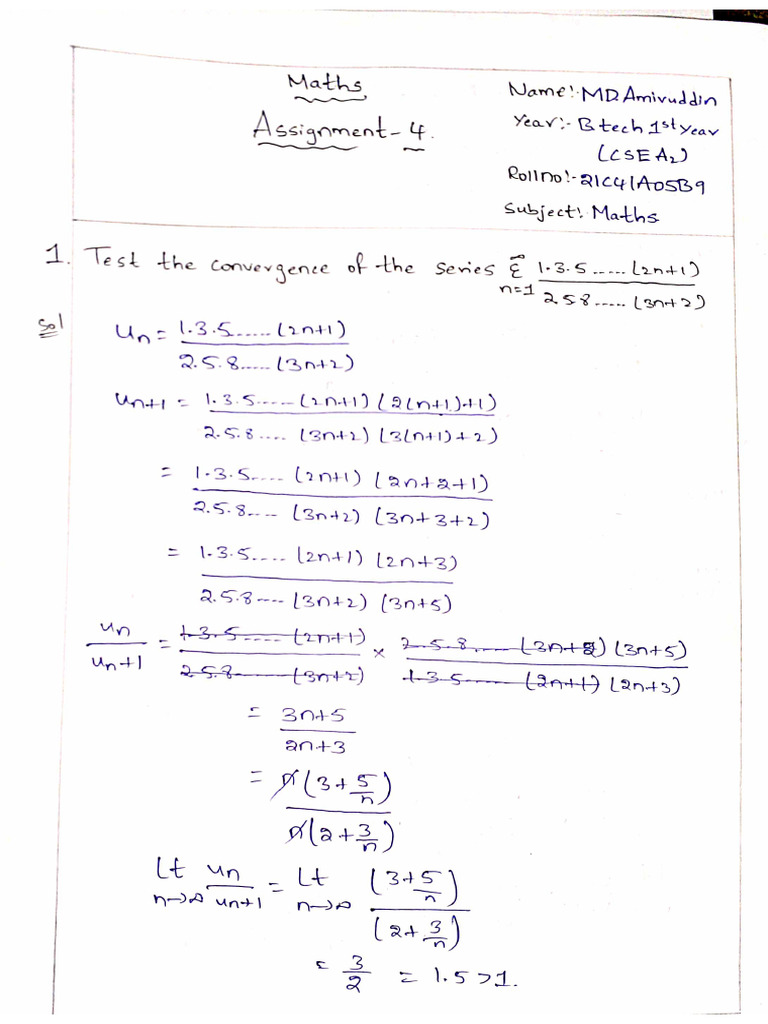 Maths
Assignment-4.
Name:- MD Amiruddin
Year:- B tech 1st year
(CSE A₂)
Roll no:- 21C41A05B9
Subject: Maths
1. Test the convergence of the series Σ^∞_{n=1} 1.3.5.....(2n+1) / 2.5.8.....(3n+2)
Sol
uₙ = 1.3.5.....(2n+1) / 2.5.8.....(3n+2)
uₙ₊₁ = 1.3.5.....(2n+1)(2(n+1)+1) / 2.5.8....(3n+2)(3(n+1)+2)
= 1.3.5....(2n+1)(2n+2+1) / 2.5.8....(3n+2)(3n+3+2)
= 1.3.5....(2n+1)(2n+3) / 2.5.8....(3n+2)(3n+5)
uₙ / uₙ₊₁ = 1.3.5.....(2n+1) / 2.5.8.......(3n+2) × 2.5.8.....(3n+2)(3n+5) / 1.3.5......(2n+1)(2n+3)
= 3n+5 / 2n+3
= n(3+5/n) / n(2+3/n)
Lt n→∞ uₙ / uₙ₊₁ = Lt n→∞ (3+5/n) / (2+3/n)
= 3/2 = 1.5 > 1.